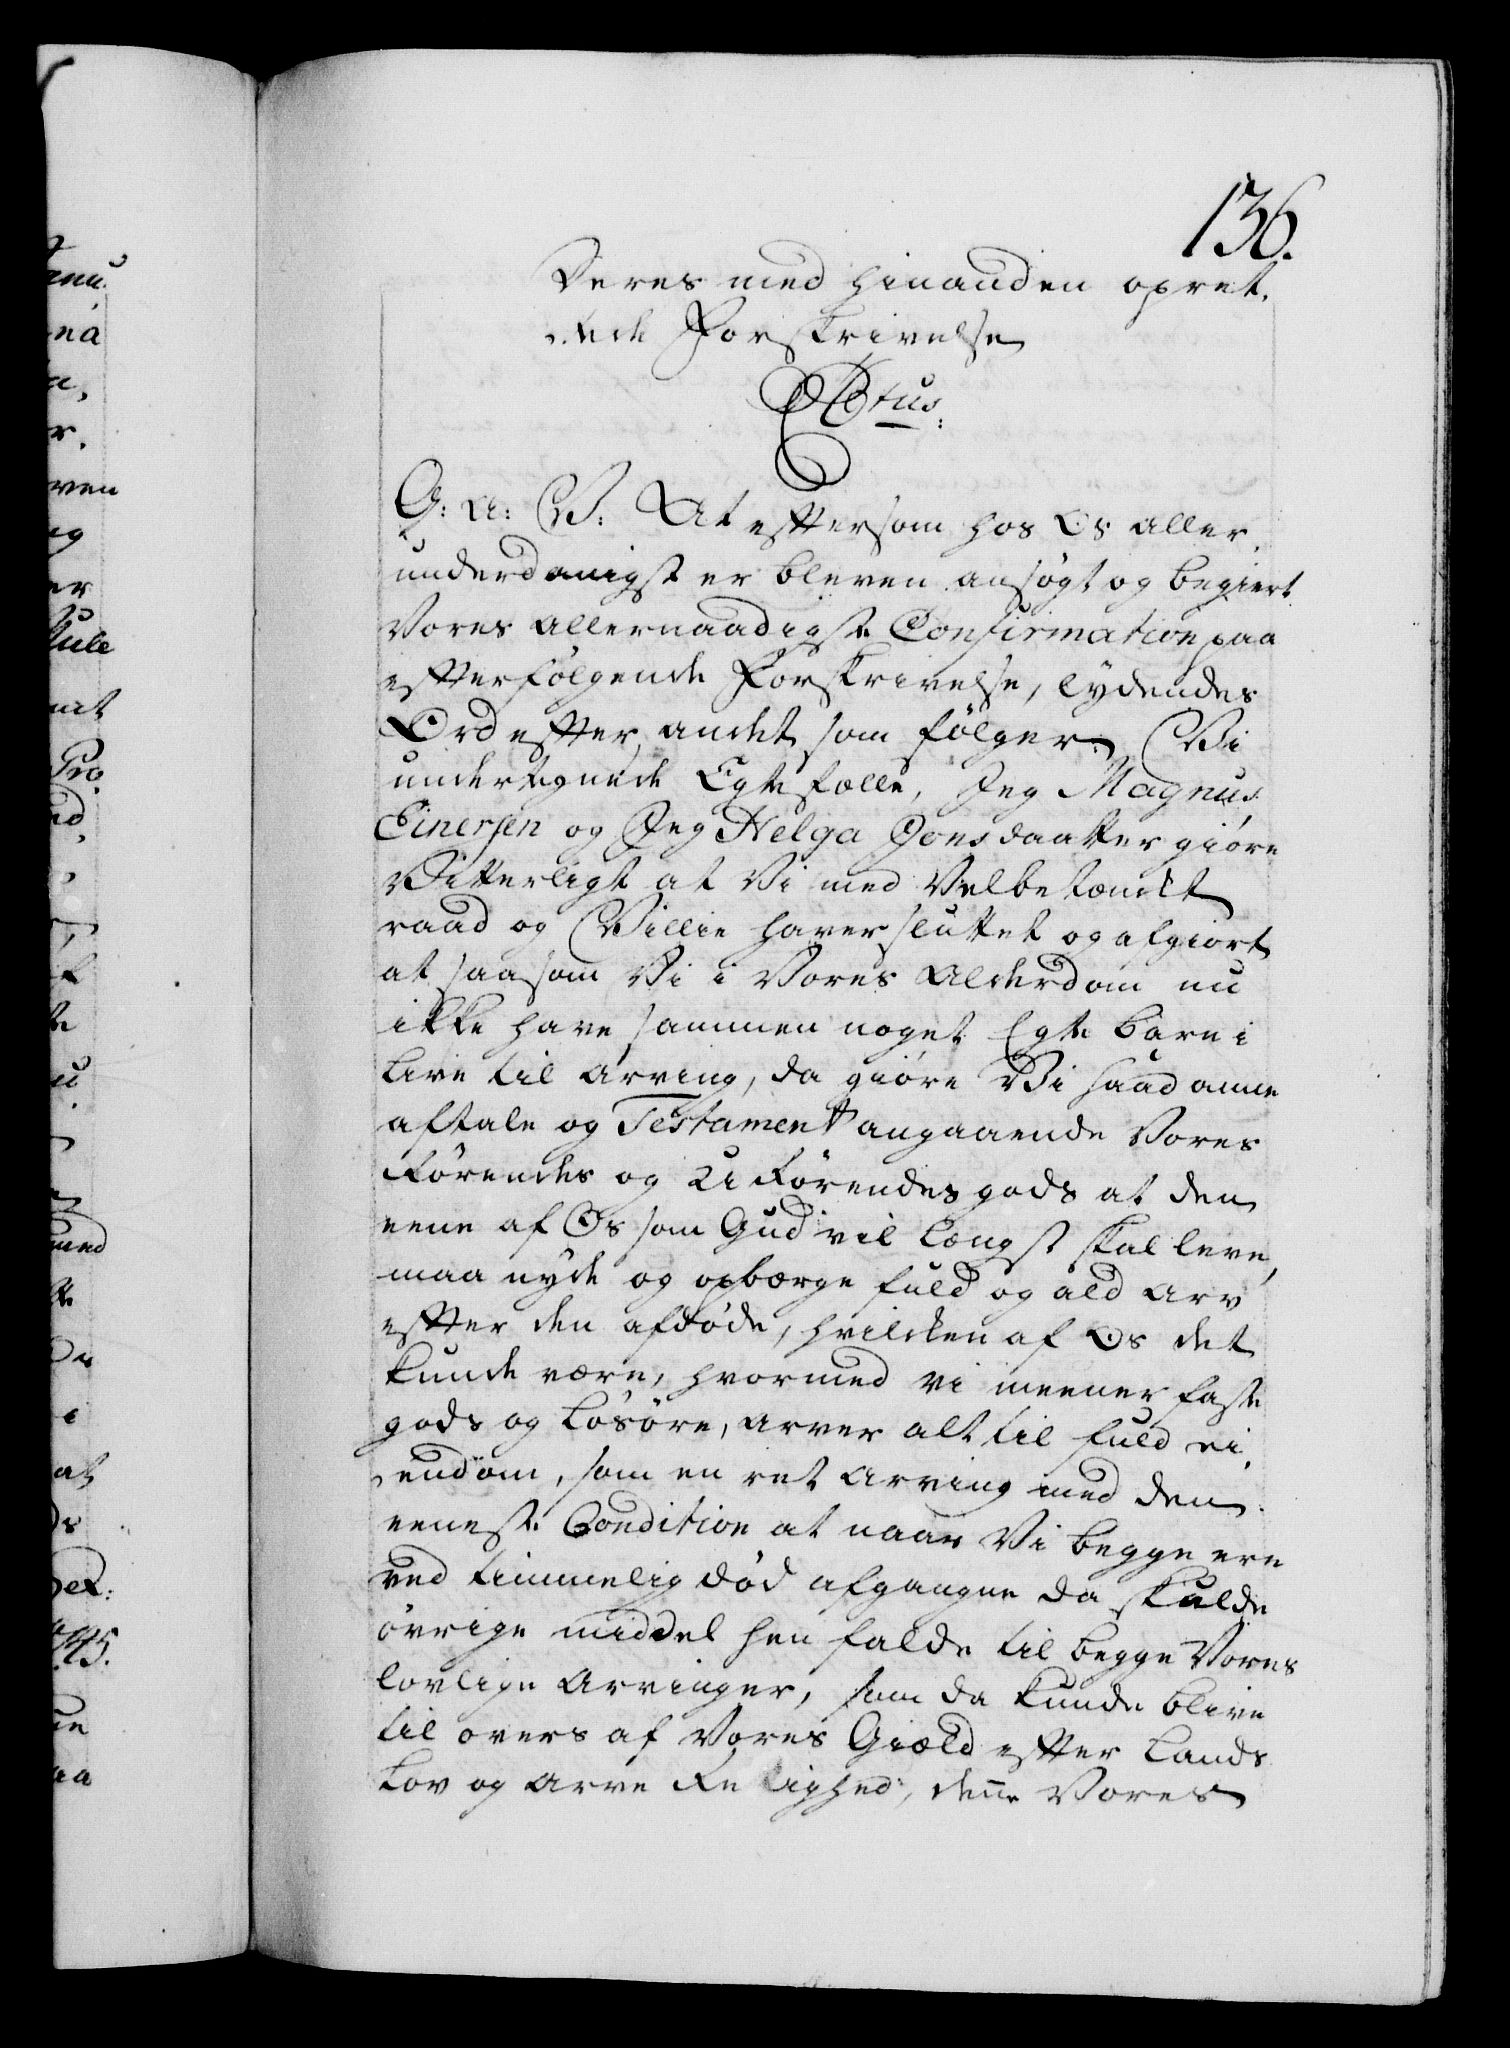 136.
Deres med hinanden opret-
tede Forskrivelse
Ctus.
G: A: V: At eftersom hos Os aller-
underdanigst er bleven ansøgt og begiert
Vores allernaadigste Confirmation paa
efterfølgende Forskrivelse, lydendes
Ord efter andet som følger. Vi
undertegnede Egtefælle, Jeg Magnus
Einersen og Jeg Helga Jonsdaatter giøre
Vitterligt at Vi med Velbetænckt
raad og Villie haver sluttet og afgiort
at saasom Vi i Vores Alderdom nu
ikke have sammen noget Egte barn i
Live til arving, da giøre Vi saadanne
aftale og Testament angaaende Vores
Rørendes og Urørendes gods at den
eene af Os som Gud vil længst skal leve,
maa nyde og opbærge fuld og ald Arv
efter den afdøde, hvilcken af Os det
kunde være, hvormed vi meener faste
gods og Løsøre, arver alt til fuld ei-
endom, som en ret Arving med den
eeneste Condition at naar Vi begge ere
ved timmelig død afgangne da skulde
øvrige middel hen falde til begge Vores
lovlige Arvinger, som da kunde blive
til overs af Vores Giæld efter Lands
Lov og Arve Rettighed, denne Vores
anu
na
a,
r.
ven
ig
er
Jule
Pro
nd,
med
at
ds
Oct:
1745.
ne
aa